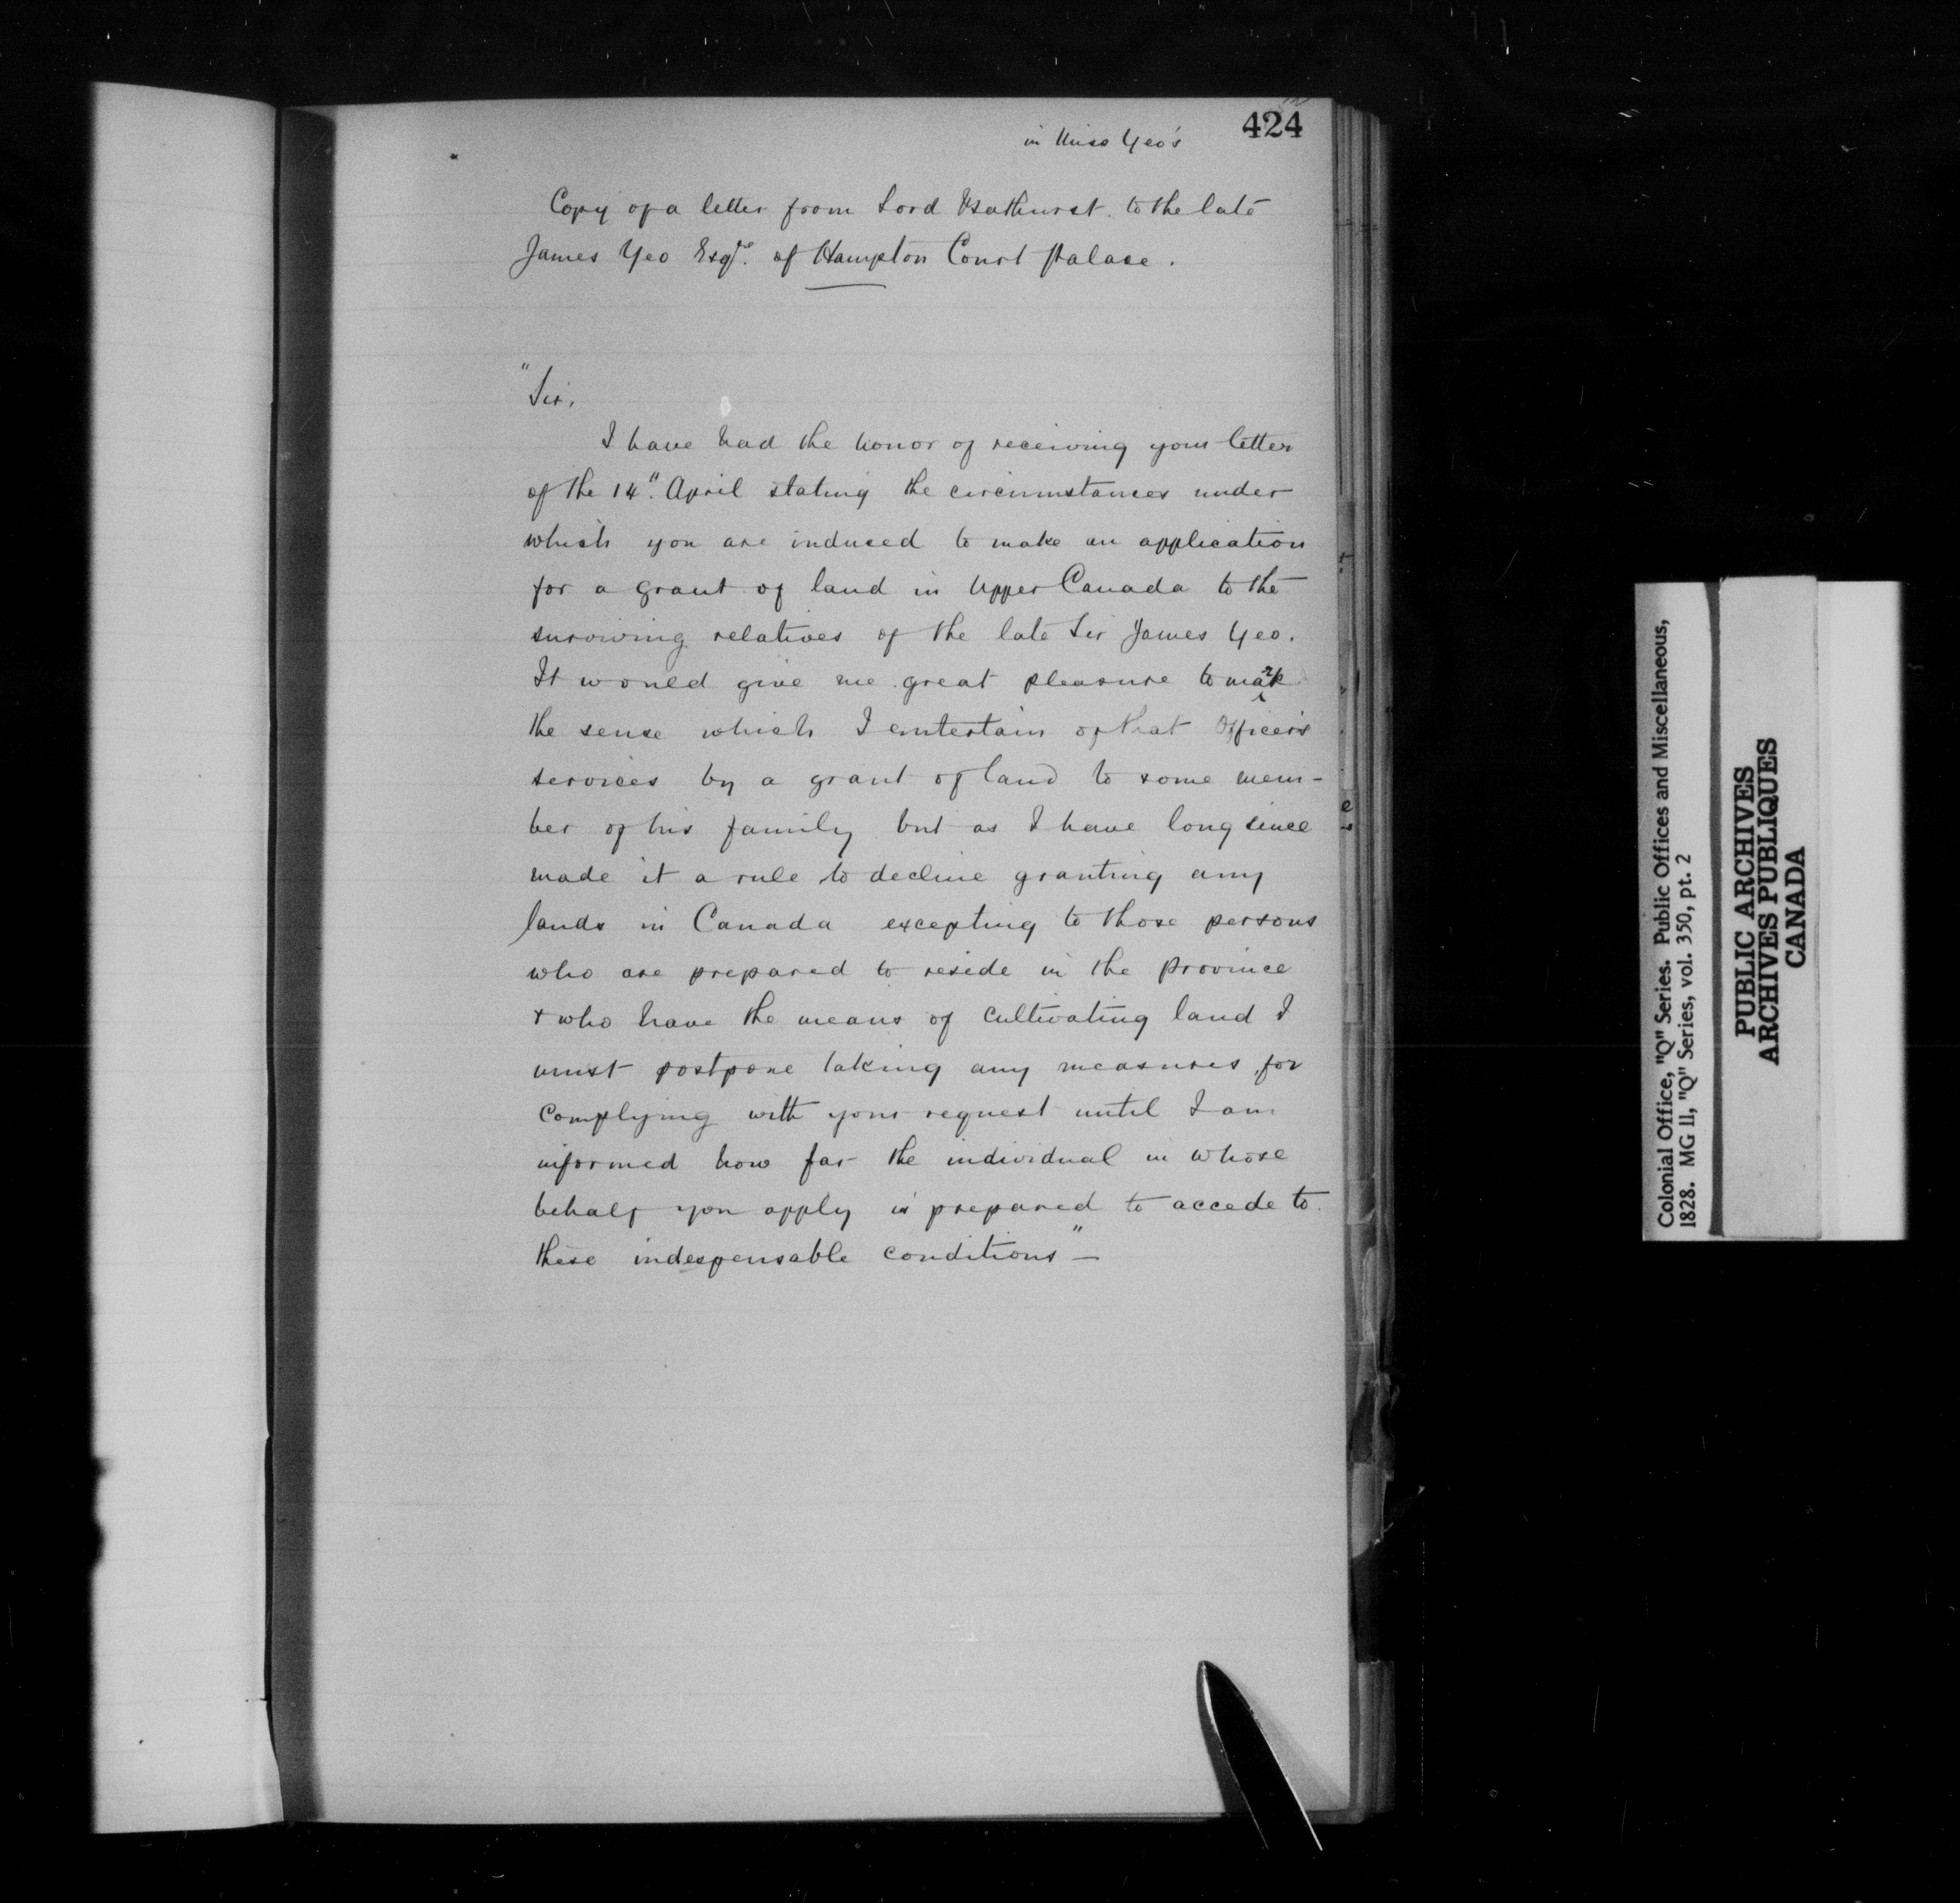 424
in Miss Yeo's
Copy of a letter from Lord Bathurst. to the late
James Yeo Esqre. of Hampton Court Palace.
"Sir,
I have had the honor of receiving your letter
of the 14". April stating the circumstances under
which you are induced to make an application
for a grant of land in Upper Canada to the
surviving relatives of the late Sir James Yeo.
It would give me great pleasure to mark
the sense which I entertain of that Officer's
services by a grant of land to some mem-
ber of his family but as I have long since
made it a rule to decline granting any
lands in Canada excepting to those persons
who are prepared to reside in the province
+ who have the means of cultivating land I
must postpone taking any measures for
complying with your request until I am
informed how far the individual in whose
behalf you apply is prepared to accede to
these indespensable conditions" —
Colonial Office, "Q" Series. Public Offices and Miscellaneous,
1828. MG 11, "Q" Series, vol. 350, pt. 2
PUBLIC ARCHIVES
ARCHIVES PUBLIQUES
CANADA